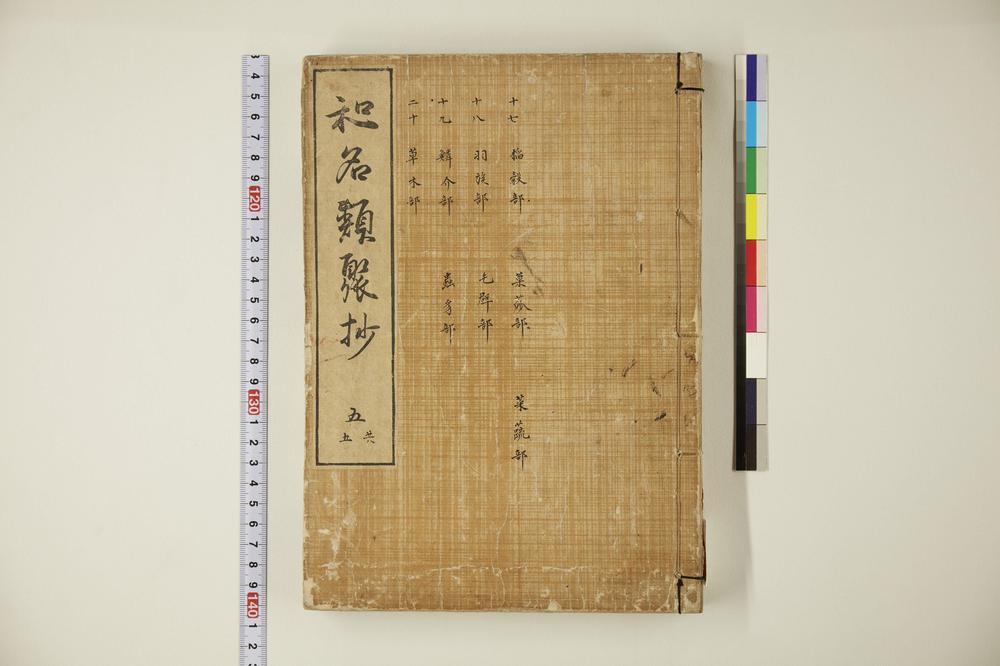 十七 稲穀部 菓蓏部 菜蔬部
十八 羽族部 毛群部
十九 鱗介部 蟲豸部
二十 草木部
和名類聚抄 五
共五
3 4 5 6 7 8 9 120 1 2 3 4 5 6 7 8 9 130 1 2 3 4 5 6 7 8 9 140 1 2